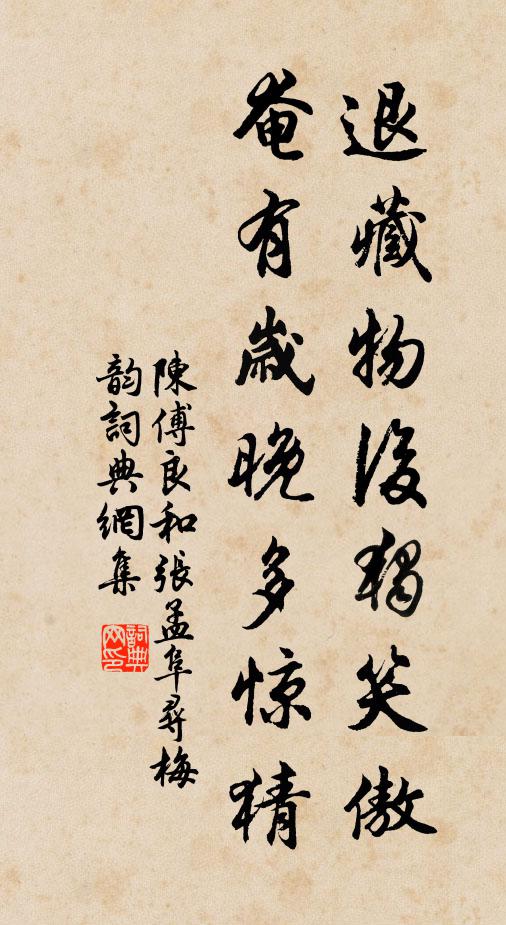 退藏物後獨笑傲
奄有歲晚多惊猜
陳傅良和張孟阜尋梅
韵詞典網集
詞典網印